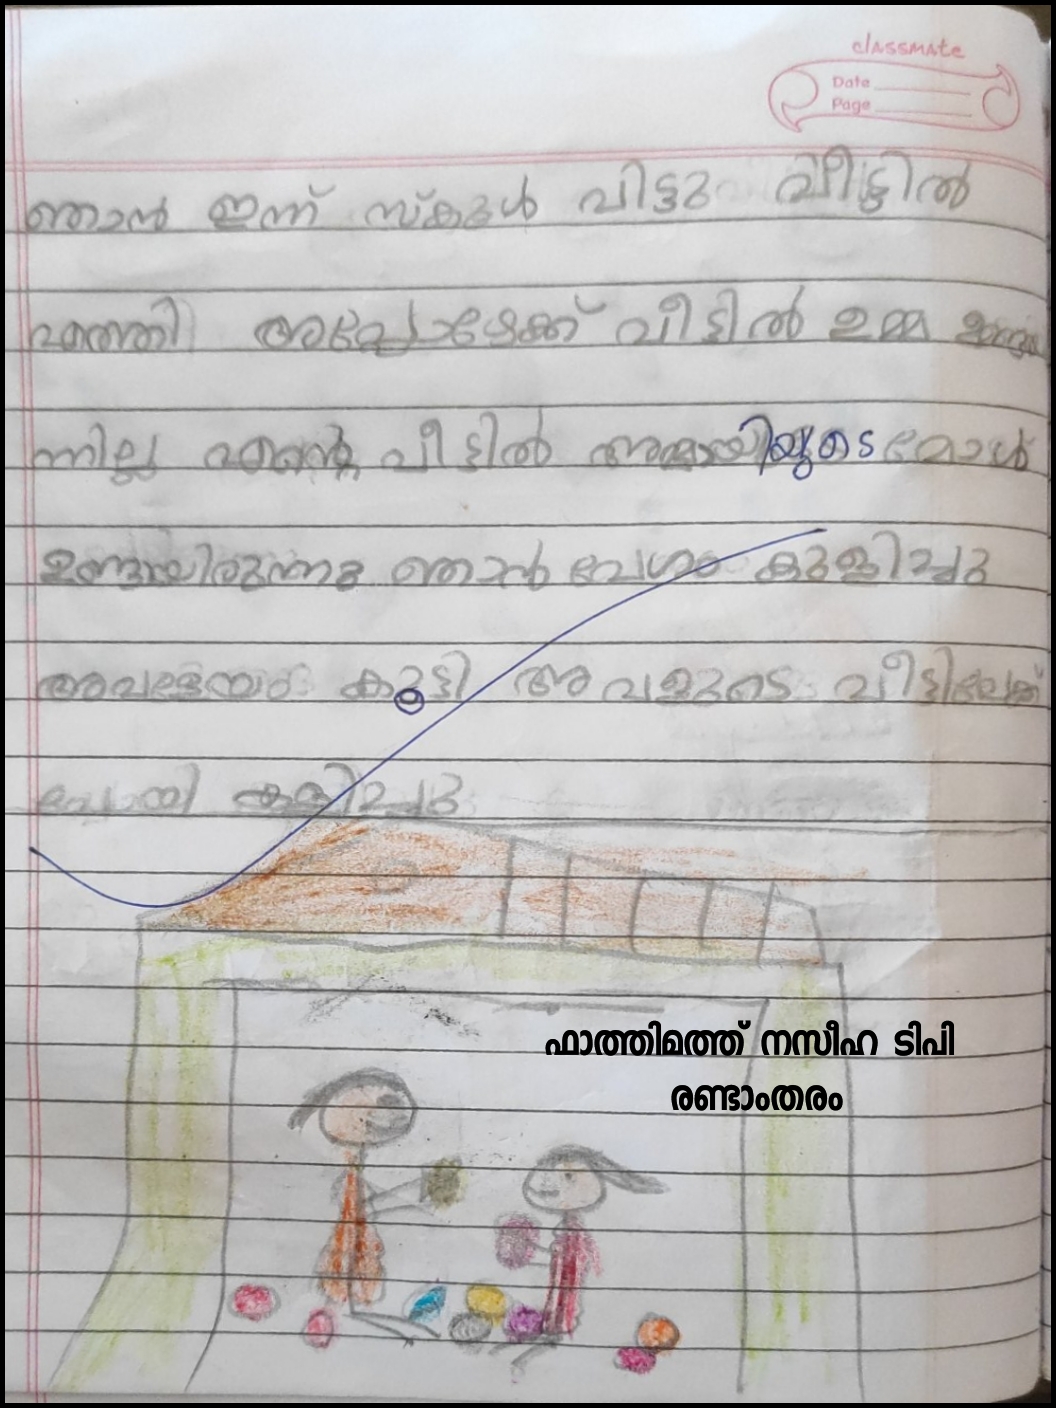 classmate
Date
Page
ഞാൻ ഇന്ന് സ്കുൾ വിട്ടു വീട്ടിൽ
എത്തി അപ്പോഴേക്ക് വീട്ടിൽ ഉമ്മ ഉണ്ടായിരു
ന്നില്ല എന്റെ വീട്ടിൽ അമ്മായിയുടെ മോൾ
ഉണ്ടായിരുന്നു ഞാൻ വേഗം കുളിച്ചു
അവളേയും കുട്ടി അവളുടെ വീട്ടിലേക്ക്
പോയി കളിച്ചു
ഫാത്തിമത്ത് നസീഹ ടിപി
രണ്ടാംതരം